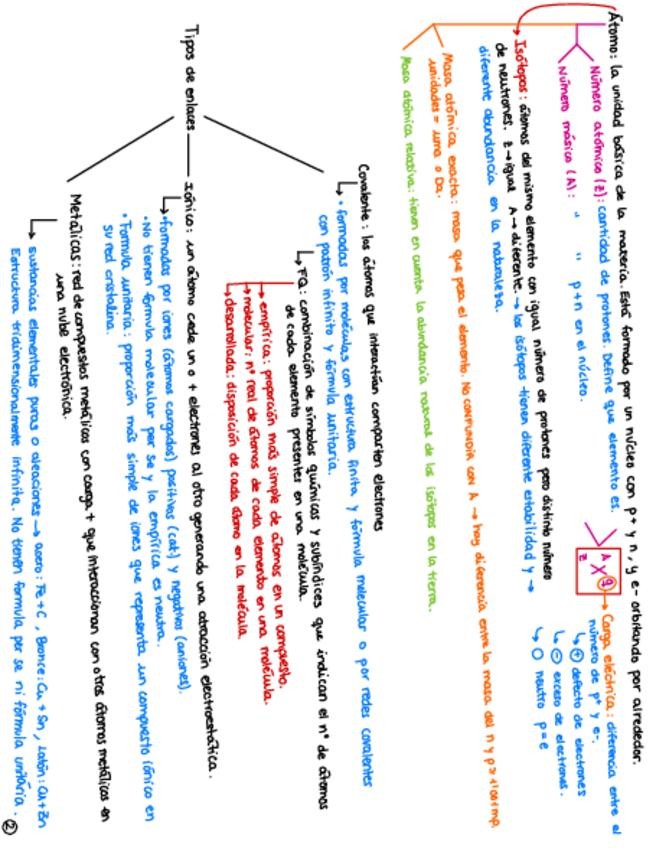 Átomo: la unidad básica de la materia. Está formado por un núcleo con p+ y n, y e- orbitando por alrededor.
Número atómico (Z): cantidad de protones. Define que elemento es.
Número másico (A): " " p+n en el núcleo.
A X q
Z
→ Carga eléctrica: diferencia entre el
número de p+ y e-.
↳ + defecto de electrones
↳ - exceso de electrones.
↳ O neutro p=e
Isótopos: átomos del mismo elemento con igual número de protones pero distinto número
de neutrones. Z→igual A→diferente. → los isótopos tienen diferente estabilidad y →
diferente abundancia en la naturaleza.
Masa atómica exacta: masa que pesa el elemento. NO CONFUNDIR CON A → hay diferencia entre la masa del n y p
unidades = uma o Da.
Masa atómica relativa: tienen en cuenta la abundancia natural de los isótopos en la tierra.
Tipos de enlaces
Covalente: los átomos que interactúan comparten electrones
↳ • formadas por moléculas con estructura finita y fórmula molecular o por redes covalentes
con patrón infinito y fórmula unitaria.
↳ FQ: combinación de símbolos químicos y subíndices que indican el nº de átomos
de cada elemento presentes en una molécula.
→ empírica: proporción más simple de átomos en un compuesto.
→ molecular: nº real de átomos de cada elemento en una molécula.
→ desarrollada: disposición de cada átomo en la molécula
Iónico: un átomo cede un o + electrones al otro generando una atracción electroestática.
↳ • formadas por iones (átomos cargados) positivos (cat) y negativos (aniones).
• No tienen fórmula molecular per se y la empírica es neutra.
• Formula unitaria: proporción más simple de iones que representa un compuesto iónico en
su red cristalina.
Metálicas: red de compuestos metálicos con carga + que interaccionan con otros átomos metálicos en
una nube electrónica.
↳ sustancias elementales puras o aleaciones → acero: Fe + C, Bronce: Cu + Sn, Latón: Cu + Zn
Estructura tridimensionalmente infinita. No tienen formula per se ni fórmula unitaria.
2